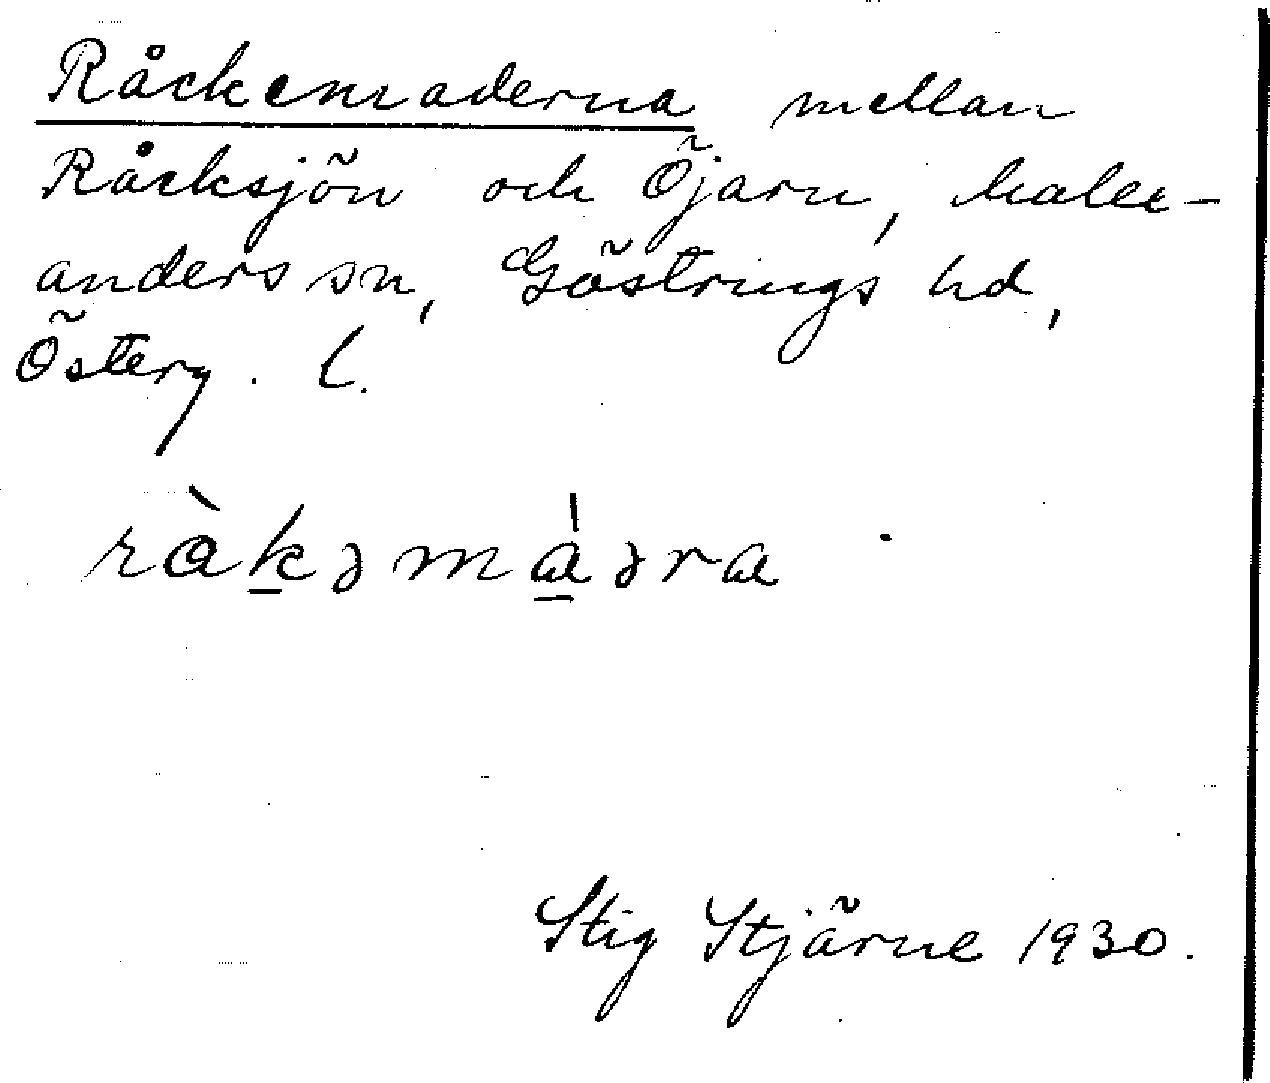 Råckemaderna mellan
Råcksjön och Öjarn, Malex-
anders sn, Göstrings hd,
Österg. l.
ràk̲əma̲̍əra .
Stig Stjärne 1930.